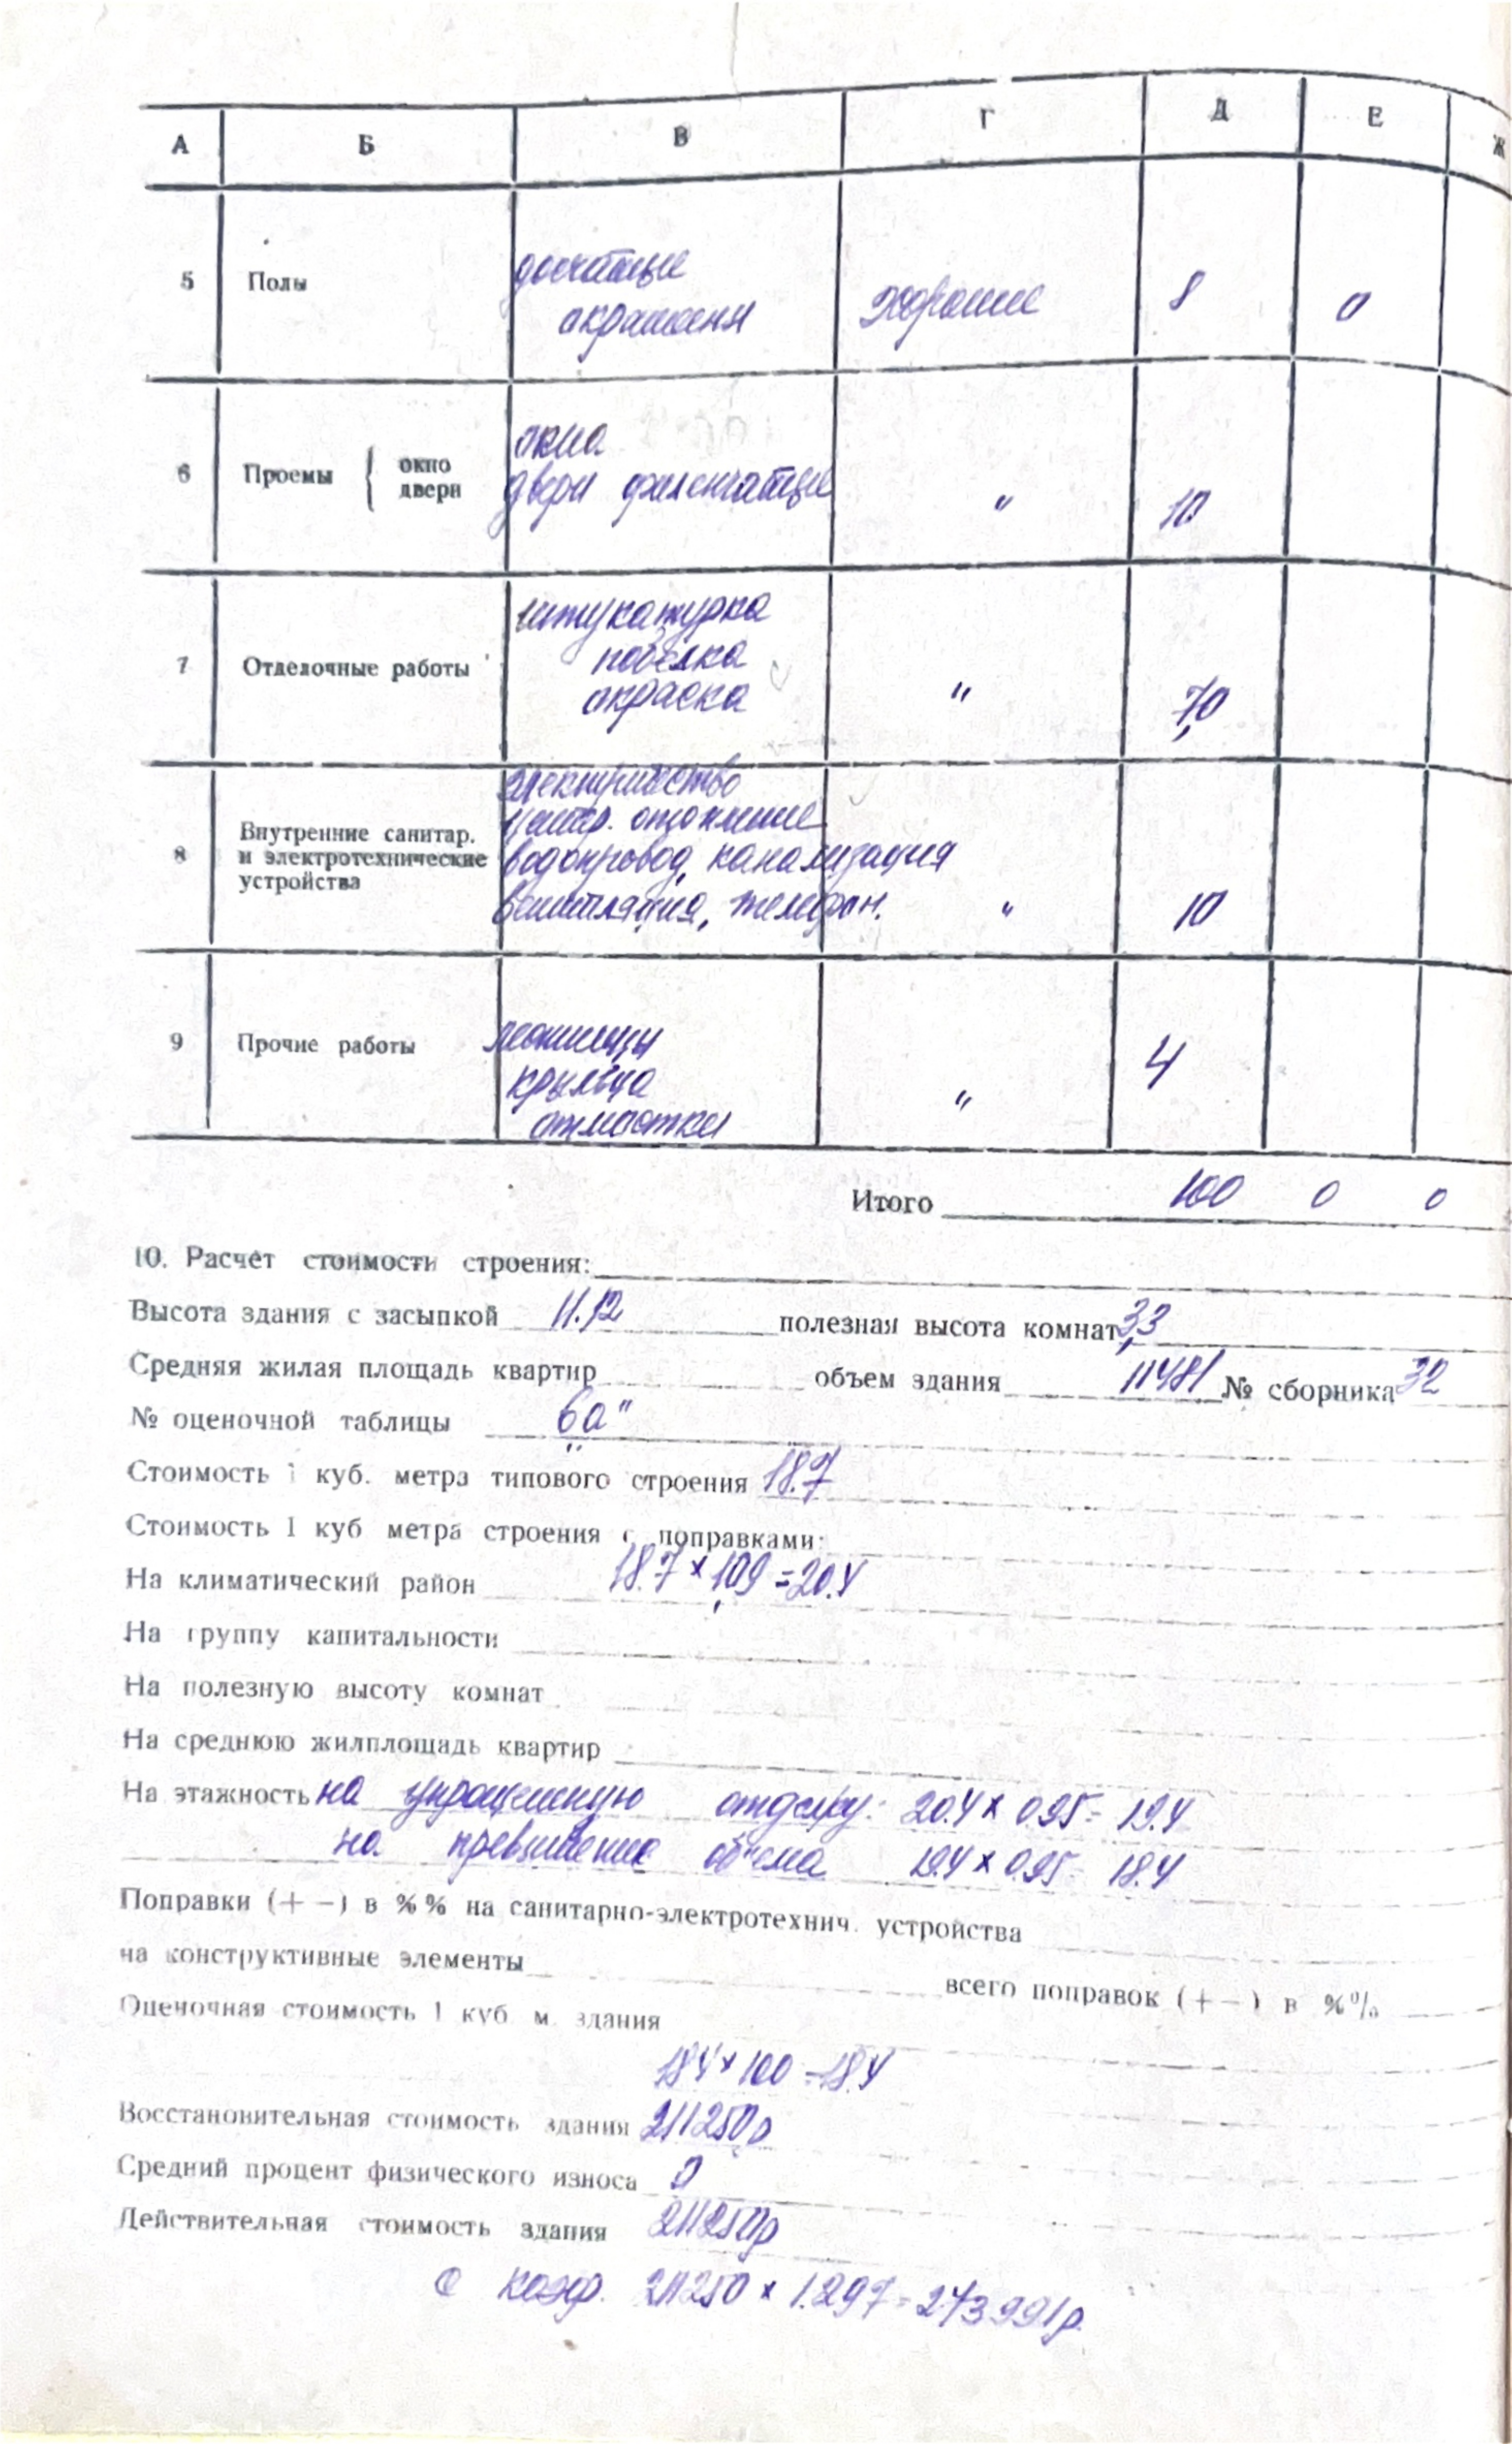 А Б В Г Д Е Ж
5 Полы досчатые
окрашены хорошие 8 0
6 Проемы { окно
двери
окна
двери филенчатые " 10
7 Отделочные работы
штукатурка
побелка
окраска " 7,0
8 Внутренние санитар.
и электротехнические
устройства
электричество
центр. отопление
водопровод, канализация
вентиляция, телефон. " 10
9 Прочие работы
лестницы
крыльца
отмостки " 4
Итого 100 0 0
10. Расчет стоимости строения:
Высота здания с засыпкой 11.12 полезная высота комнат 3,3
Средняя жилая площадь квартир объем здания 11481 № сборника 32
№ оценочной таблицы „6а"
Стоимость 1 куб. метра типового строения 18.7
Стоимость 1 куб метра строения с поправками:
На климатический район 18.7 × 1,09 = 20.4
На группу капитальности
На полезную высоту комнат
На среднюю жилплощадь квартир
На этажность на упрощенную отделку: 20.4 × 0.95 = 19.4
на превышение объема 19.4 × 0.95 = 18.4
Поправки (+ —) в %% на санитарно-электротехнич. устройства
на конструктивные элементы всего поправок (+ —) в %%
Оценочная стоимость 1 куб. м. здания
18.4 × 100 = 18.4
Восстановительная стоимость здания 211250р
Средний процент физического износа 0
Действительная стоимость здания 211250р
С коэф. 211250 × 1.297 = 273991р.